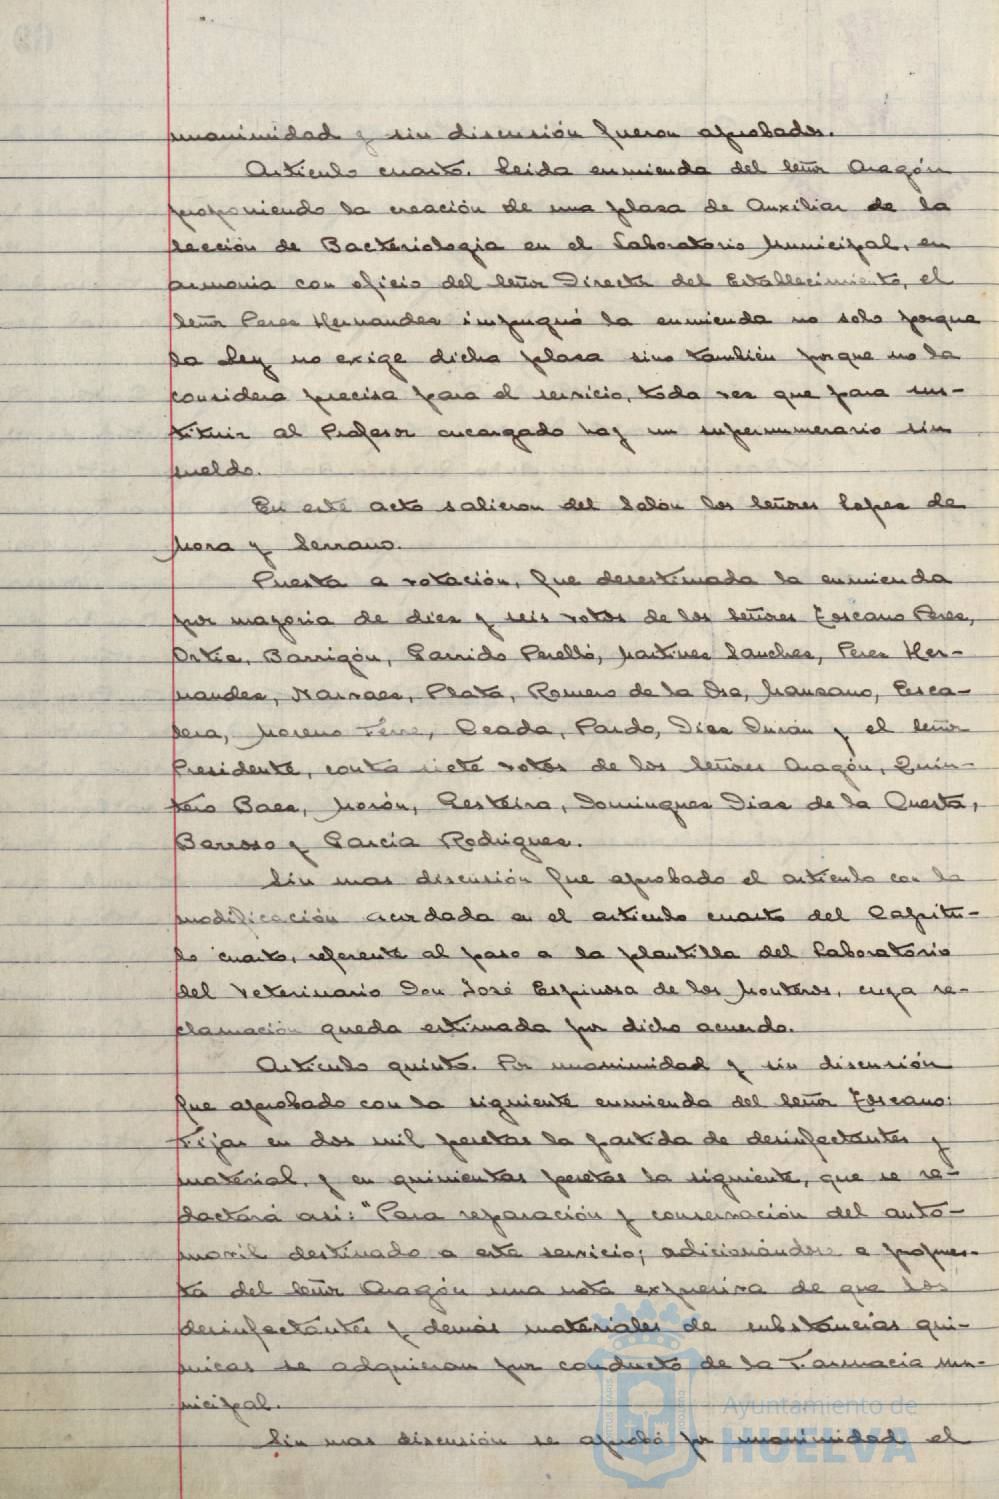 unanimidad y sin discusión fueron aprobados.
Artículo cuarto. Leida enmienda del Señor Aragón
proponiendo la creación de una plasa de Auxiliar de la
Sección de Bacteriologia en el Laboratorio Municipal, en
armonia con oficio del Señor Director del Establecimiento, el
Señor Peres Hernandes impugnó la enmienda no solo porque
la Ley no exige dicha plasa sino también porque no la
considera precisa para el servicio, toda ves que para sus-
tituir al Profesor encargado hay un supernumerario sin
sueldo.
En este acto salieron del Salón los Señores Lopes de
Mora y Serrano.
Puesta a votación, fue desestimada la enmienda
por mayoria de dies y seis votos de los Señores Toscano Peres,
Ortis, Barrigón, Garrido Perelló, Martines Sanches, Peres Her-
nandes, Narvaes, Plata, Romero de la Osa, Mansano, Esca-
lera, Moreno Ferre, Ceada, Pardo, Dias Durán y el Señor
Presidente, contra siete votos de los Señores Aragón, Quin-
tero Baes, Morón, Gesteira, Domingues Dias de la Cuesta,
Barroso y García Rodrigues.
Sin mas discusión fue aprobado el artículo con la
modificación acordada en el artículo cuarto del Capítu-
lo cuarto, referente al paso a la plantilla del Laboratorio
del Veterinario Don José Espinosa de los Monteros, cuya re-
clamación queda estimada por dicho acuerdo.
Artículo quinto. Por unanimidad y sin discusión
fue aprobado con la siguiente enmienda del Señor Toscano:
Fijar en dos mil pesetas la partida de desinfectantes y
material, y en quinientas pesetas la siguiente, que se re-
dactará así: "Para reparación y conservación del auto-
movil destinado a este servicio; adicionándose a propues-
ta del Señor Aragón una nota expresiva de que los
desinfectantes y demás materiales de substancias quí-
micas se adquieran por conducto de la Farmacia Mu-
nicipal.
Sin mas discusión se aprobó por unanimidad el
Ayuntamiento de
HUELVA